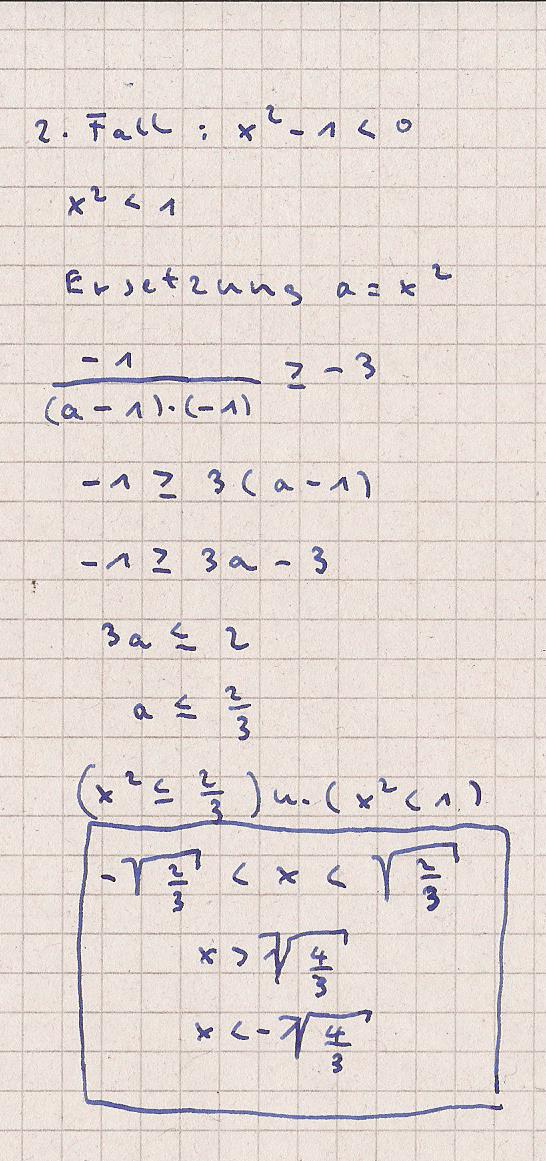 2. Fall : x² - 1 < 0
x² < 1
Ersetzung a = x²
-1 / (a - 1)·(-1) ≥ -3
-1 ≥ 3(a - 1)
-1 ≥ 3a - 3
3a ≤ 2
a ≤ 2/3
(x² ≤ 2/3) u. (x² < 1)
-√(2/3) < x < √(2/3)
x > √(4/3)
x < -√(4/3)